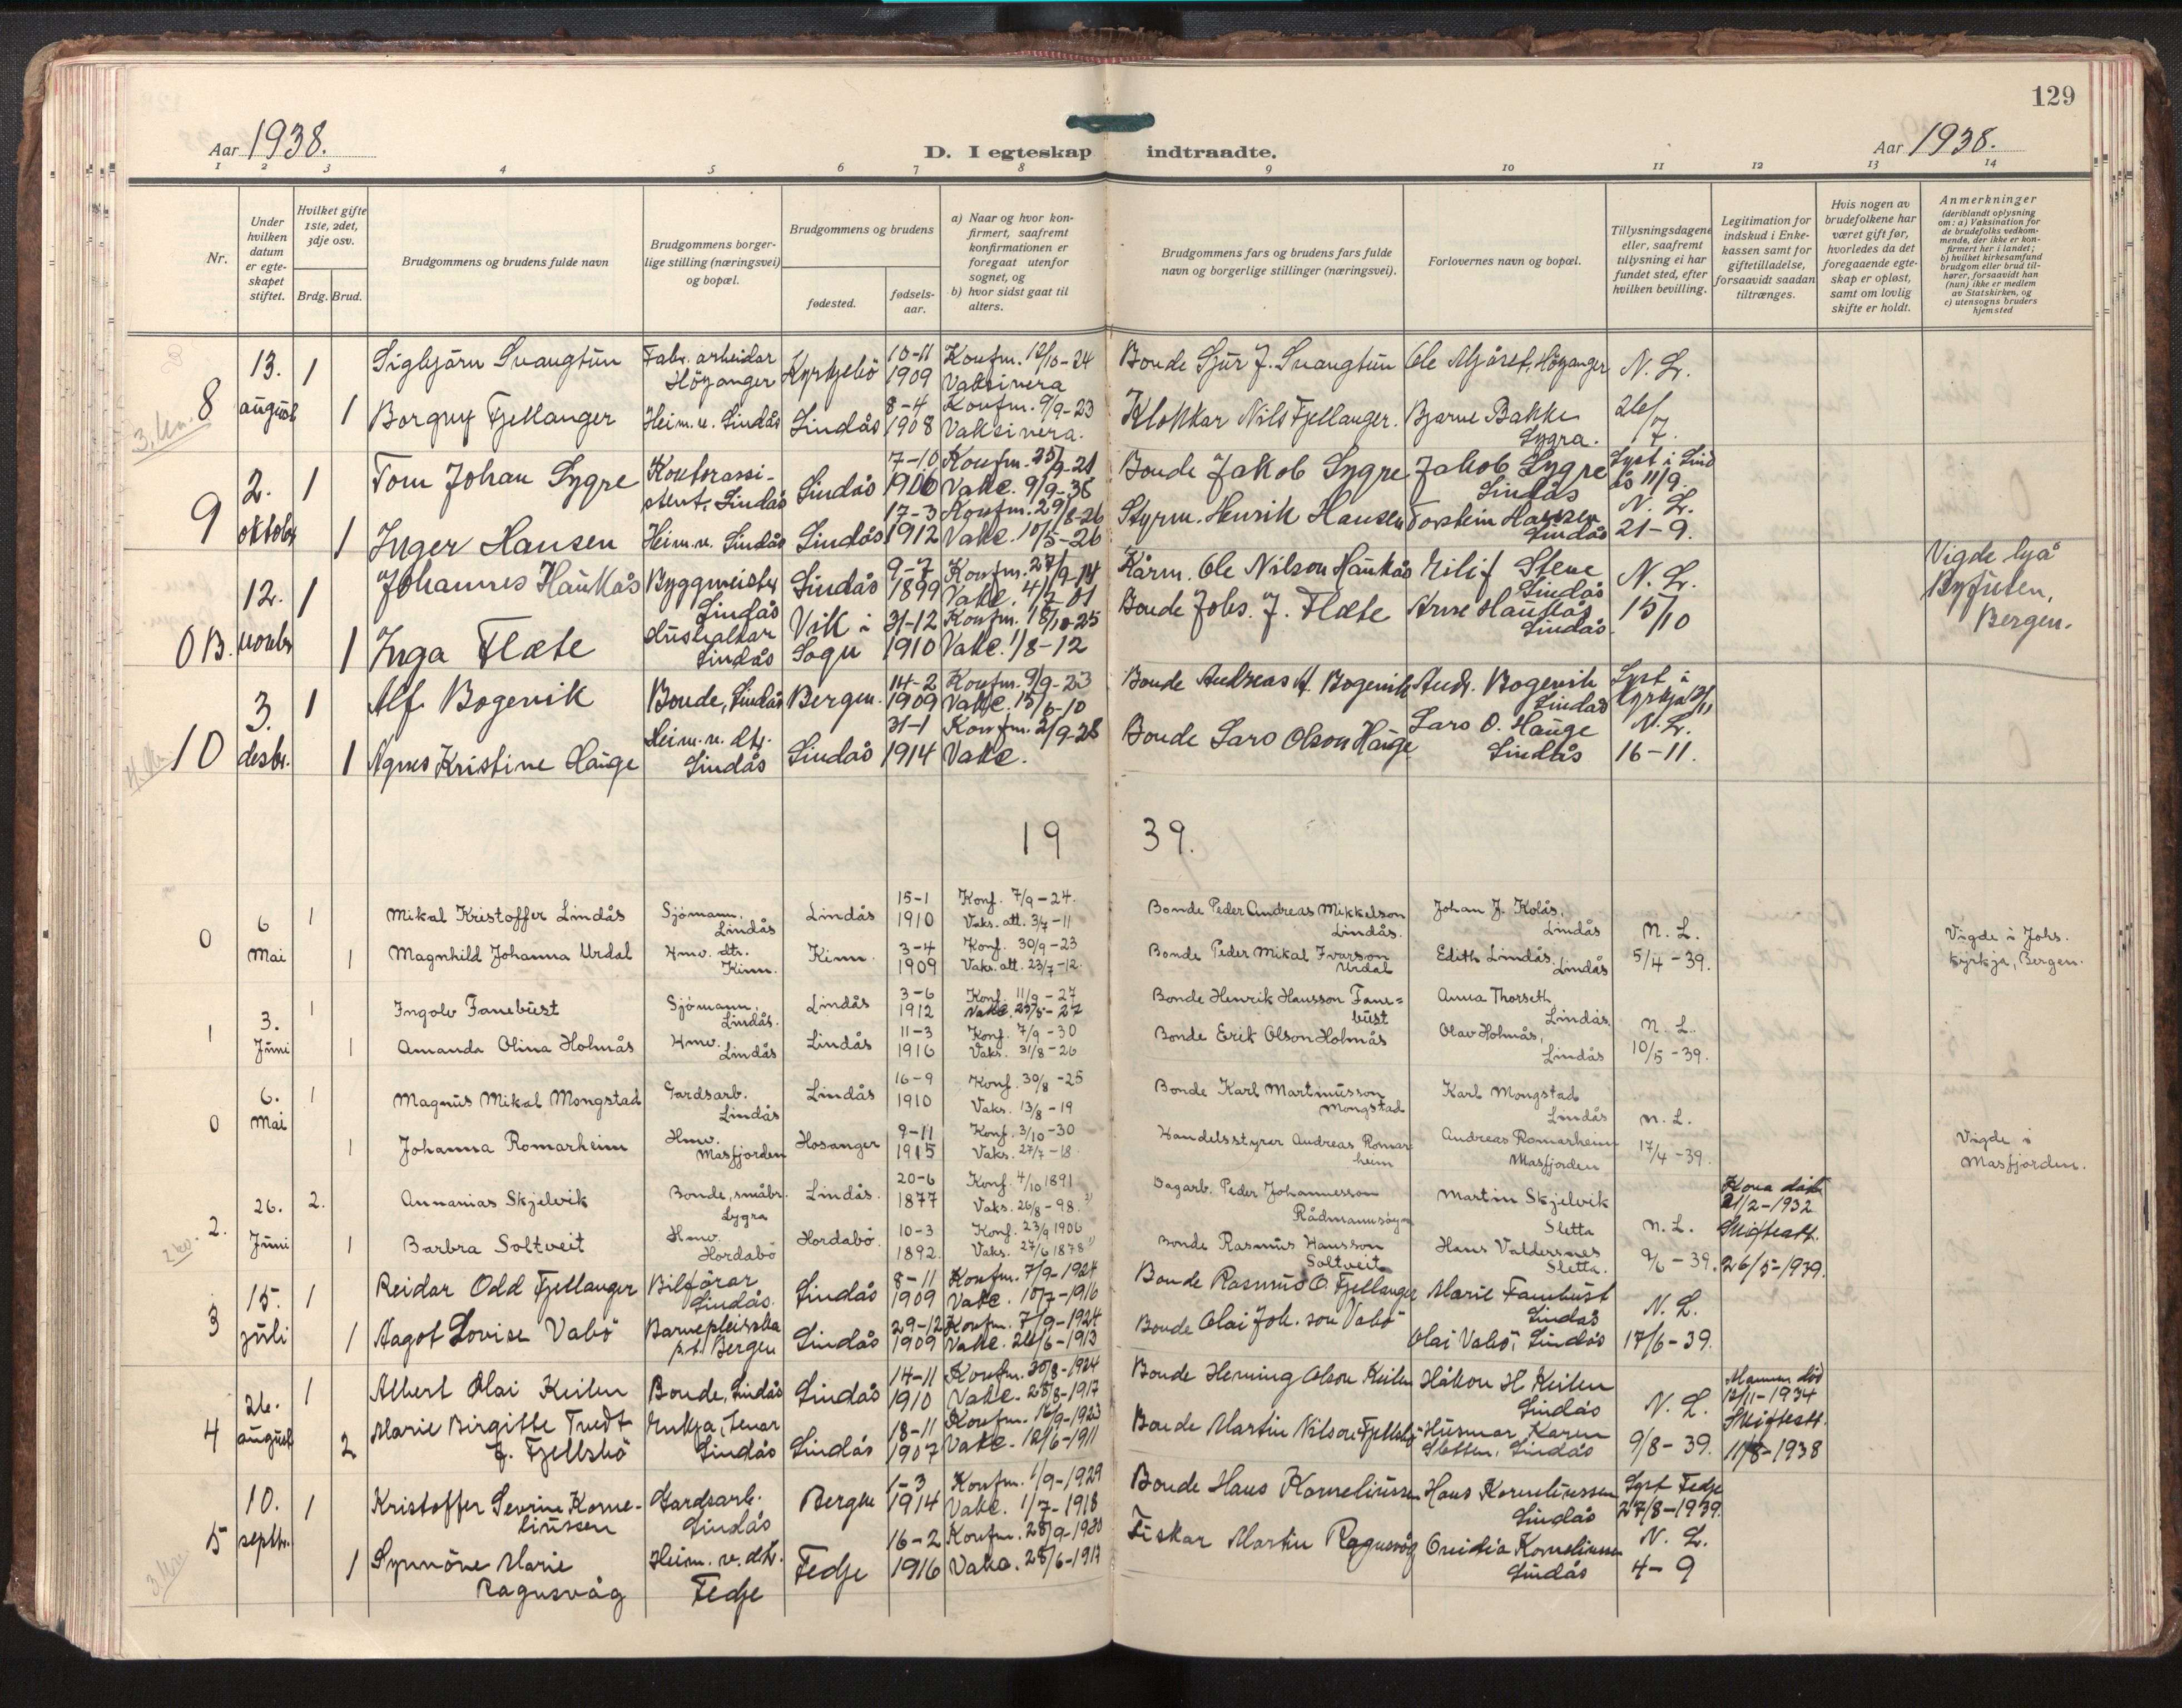 129
Aar 1938.
D. I egteskap indtraadte.
Aar 1938.
1 2 3 4 5 6 7 8 9 10 11 12 13 14
Nr.
Under hvilken datum er egteskapet stiftet.
Hvilket gifte 1ste, 2det, 3dje osv.
Brdg. Brud.
Brudgommens og brudens fulde navn
Brudgommens borgerlige stilling (næringsvei) og bopæl.
Brudgommens og brudens
fødested.
fødselsaar.
a) Naar og hvor konfirmert, saafremt konfirmationen er foregaat utenfor sognet, og
b) hvor sidst gaat til alters.
Brudgommens fars og brudens fars fulde navn og borgerlige stillinger (næringsvei).
Forlovernes navn og bopæl.
Tillysningsdagene eller, saafremt tillysning ei har fundet sted, efter hvilken bevilling.
Legitimation for indskud i Enkekassen samt for giftetilladelse, forsaavidt saadan tiltrænges.
Hvis nogen av brudefolkene har været gift før, hvorledes da det foregaaende egteskap er opløst, samt om lovlig skifte er holdt.
Anmerkninger
(deriblandt oplysning om: a) Vaksination for de brudefolks vedkommende, der ikke er konfirmert her i landet;
b) hvilket kirkesamfund brudgom eller brud tilhører, forsaavidt han (hun) ikke er medlem av Statskirken, og
c) utensogns bruders hjemsted
8 13. august 1 Sigbjörn Svangtun Fabr. arbeidar Höyanger Kyrkjebö 10-11 1909 Konfm. 12/10-24 Vaksinera Bonde Sjur J. Svangtun Ole Mjåset, Höyanger N. L.
1 Borgny Fjellanger Heim. v. Lindås Lindås 8-4 1908 Konfm. 9/9-23 Vaksinera. Klokkar Nils Fjellanger. Bjarne Bakke Lygra. 26/7.
9 2. oktober 1 Tom Johan Lygre Kontorassistent, Lindås Lindås 7-10 1906 Konfm. 25/9-21 Vakc. 9/9-38 Bonde Jakob Lygre Jakob Lygre Lindås Lyst i Lindås 11/9.
1 Inger Hansen Heim. v. Lindås Lindås 17-3 1912 Konfm. 29/8-26 Vakc. 10/5-26 Styrm. Henrik Hansen Torstein Hansen Lindås N. L. 21-9.
0 B. 12. novbr 1 Johannes Haukås Byggmeister Lindås Lindås 9-7 1899 Konfm. 27/9-14 Vakc. 4/2-01 Kårm. Ole Nilson Haukås Eilif Stene Lindås N. L. Vigde hjå Byfuten, Bergen.
1 Inga Flæte Hushaldar Lindås Vik i Sogn 31-12 1910 Konfm. 18/10-25 Vakc. 1/8-12 Bonde Johs. J. Flæte Arne Haukås Lindås. 15/10
10 3. desbr. 1 Alf Bogevik Bonde, Lindås Bergen. 14-2 1909 Konfm. 9/9-23 Vakc. Bonde Andreas A. Bogevik Andr. Bogevik Lindås Lyst i kyrkja
1 Agnes Kristine Hauge Heim. v. dtr. Lindås Lindås 31-1 1914 Konfm. 2/9-28 Vakc. Bonde Lars Olson Hauge Lars O. Hauge Lindås N. L. 16-11.
1939.
0 6 Mai 1 Mikal Kristoffer Lindås Sjömann. Lindås Lindås 15-1 1910 Konf. 7/9-24. Vaks. att. 3/7-11 Bonde Peder Andreas Mikkelson Lindås. Johan J. Kolås, Lindås N. L. Vigde i Johs. kyrkja, Bergen.
1 Magnhild Johanna Urdal Hmv. dtr. Kinn. Kinn. 3-4 1909 Konf. 30/9-23 Vaks. att. 23/7-12. Bonde Peder Mikal Ivarson Urdal Edith Lindås, Lindås 5/4-39.
1 3. Juni 1 Ingolv Fanebust Sjömann, Lindås. Lindås 3-6 1912 Konf. 11/9-27 Vakc. 23/5-27 Bonde Henrik Hansson Fanebust Anna Thorseth, Lindås. N. L.
1 Amanda Olina Holmås Hmv. Lindås Lindås 11-3 1916 Konf. 7/9-30 Vaks. 31/8-26 Bonde Erik Olson Holmås Olav Holmås, Lindås 10/5-39.
0 6. Mai 1 Magnus Mikal Mongstad Gardsarb. Lindås Lindås 16-9 1910 Konf. 30/8-25 Vaks. 13/8-19 Bonde Karl Martinusson Mongstad Karl Mongstad Lindås N. L. Vigde i Masfjorden.
1 Johanna Romarheim Hmv. Masfjorden Hosanger 9-11 1915 Konf. 3/10-30 Vaks. 27/7-18. Handelsstyrer Andreas Romarheim Andreas Romarheim Masfjorden 17/4-39.
2. 26. Juni 2. Annanias Skjelvik Bonde, småbr. Lygra Lindås. 20-6 1877 Konf. 4/10 1891 Vaks. 26/8-98. Dagarb. Peder Johannesson Rådmannsöyn Martin Skjelvik Sletta N. L. Kona död 21/2-1932 Skifteatt. 26/5-1939.
1 Barbra Soltveit Hmv. Hordabö Hordabö. 10-3 1892. Konf. 23/9 1906 Vaks. 27/6 1878 Bonde Rasmus Hansson Soltveit Hans Valdersnes Sletta. 9/6-39.
3 15. juli 1 Reidar Odd Fjellanger Bilförar Lindås. Lindås 8-11 1909 Konfm. 7/9-1924 Vakc. 10/7-1916 Bonde Rasmus O. Fjellanger Marie Fanebust Lindås N. L.
1 Aagot Lovise Vabö Barnepleierska p.t. Bergen Lindås 29-12 1909 Konfm. 7/9-1924 Vakc. 26/6-1913 Bonde Olai Joh. son Vabö Olai Vabö, Lindås 17/6-39.
4 26. august 1 Albert Olai Keilen Bonde, Lindås Lindås 14-11 1910 Konfm. 30/8-1924 Vakc. 28/8-1917 Bonde Heming Olson Keilen Håkon H Keilen Lindås N. L. Mannen död 12/11-1934 Skifteatt. 11/8-1938
2 Marie Birgitte Tvedt f. Fjellsbö Enkja, Lindås Lindås 18-11 1907 Konfm. 16/9-1923 Vakc. 12/6-1911 Bonde Martin Nilson Fjellsbö Husmor Karen Sletten, Lindås 9/8-39.
5 10. septbr. 1 Kristoffer Severin Korneliussen Gardsarb. Lindås Bergen 1-3 1914 Konfm. 1/9-1929 Vakc. 1/7-1918 Bonde Hans Korneliussen Hans Korneliussen Lindås Lyst Fedje 27/8-1939.
1 Synnöve Marie Ragnsvåg Heim. v. dtr. Fedje Fedje 16-2 1916 Konfm. 28/9-1930 Vakc. 28/6-1917 Fiskar Martin Ragnsvåg Korneliussen Lindås N. L. 4-9